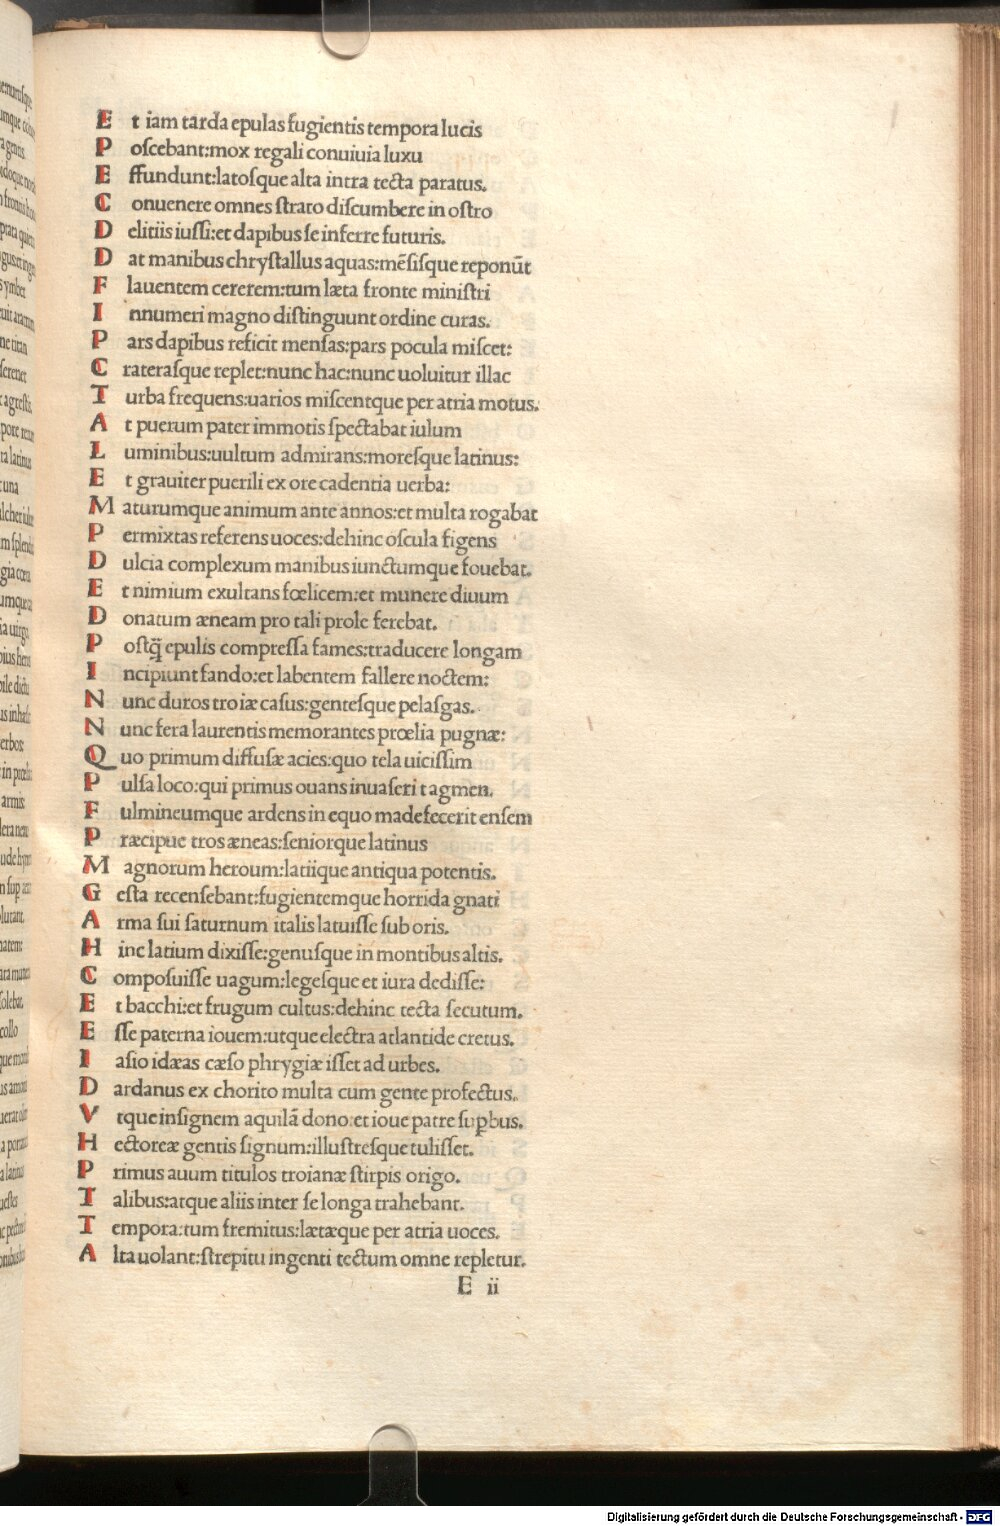 E t iam tarda epulas fugientis tempora lucis
P oſcebant:mox regali conuiuia luxu
E ffundunt:latoſque alta intra tecta paratus.
C onuenere omnes ſtrato diſcumbere in oſtro
D elitiis iuſſi:et dapibus ſe inferre futuris.
D at manibus chryſtallus aquas:mēſiſque reponūt
F lauentem cererem:tum læta fronte miniſtri
I nnumeri magno diſtinguunt ordine curas.
P ars dapibus reficit menſas:pars pocula miſcet:
C rateraſque replet:nunc hac:nunc uoluitur illac
T urba frequens:uarios miſcentque per atria motus.
A t puerum pater immotis ſpectabat iulum
L uminibus:uultum admirans:moreſque latinus:
E t grauiter puerili ex ore cadentia uerba:
M aturumque animum ante annos:et multa rogabat
P ermixtas referens uoces:dehinc oſcula figens
D ulcia complexum manibus iunctumque fouebat.
E t nimium exultans fœlicem:et munere diuum
D onatum æneam pro tali prole ferebat.
P oſtq̄ epulis compreſſa fames:traducere longam
I ncipiunt fando:et labentem fallere noctem:
N unc duros troiæ caſus:genteſque pelaſgas.
N unc fera laurentis memorantes prœlia pugnæ:
Q uo primum diffuſæ acies:quo tela uiciſſim
P ulſa loco:qui primus ouans inuaſerit agmen.
F ulmineumque ardens in equo madefecerit enſem
P ræcipue tros æneas:ſeniorque latinus
M agnorum heroum:latiique antiqua potentis.
G eſta recenſebant:fugientemque horrida gnati
A rma ſui ſaturnum italis latuiſſe ſub oris.
H inc latium dixiſſe:genuſque in montibus altis.
C ompoſuiſſe uagum:legeſque et iura dediſſe:
E t bacchi:et frugum cultus:dehinc tecta ſecutum.
E ſſe paterna iouem:utque electra atlantide cretus.
I aſio idæas cæſo phrygiæ iſſet ad urbes.
D ardanus ex chorito multa cum gente profectus.
V tque inſignem aquilā dono:et ioue patre ſuꝑbus.
H ectoreæ gentis ſignum:illuſtreſque tuliſſet.
P rimus auum titulos troianæ ſtirpis origo.
T alibus:atque aliis inter ſe longa trahebant.
T empora:tum fremitus:lætæque per atria uoces.
A lta uolant:ſtrepitu ingenti tectum omne repletur.
E ii
Digitalisierung gefördert durch die Deutsche Forschungsgemeinschaft - DFG